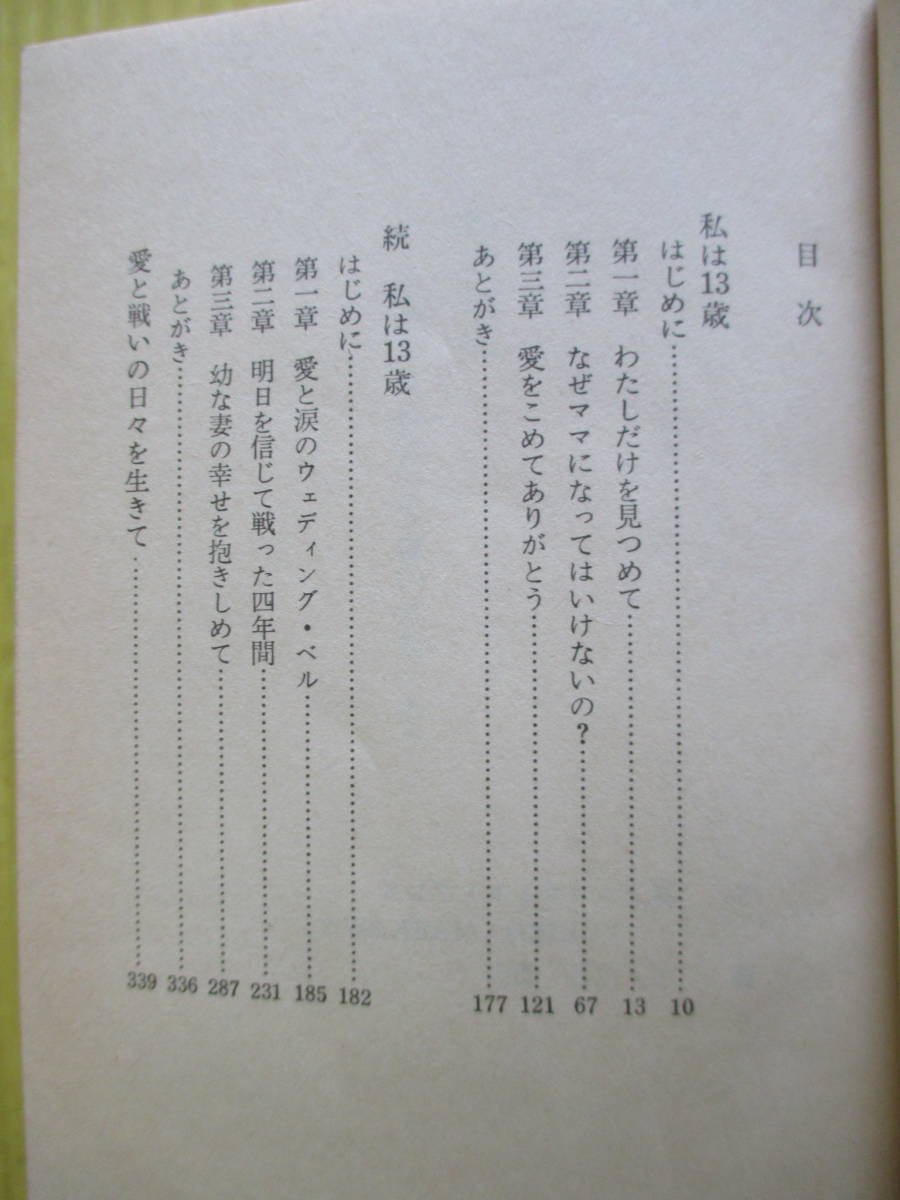 目次
私は13歳
はじめに……………10
第一章　わたしだけを見つめて……………13
第二章　なぜママになってはいけないの？……………67
第三章　愛をこめてありがとう……………121
あとがき……………177
続　私は13歳
はじめに……………182
第一章　愛と涙のウェディング・ベル……………185
第二章　明日を信じて戦った四年間……………231
第三章　幼な妻の幸せを抱きしめて……………287
あとがき……………336
愛と戦いの日々を生きて……………339